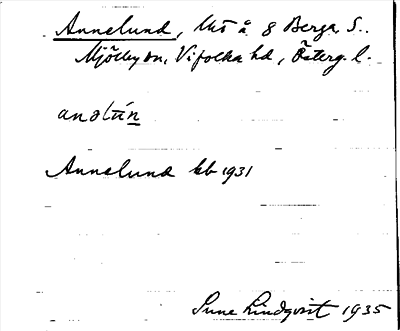 Annelund, lht å 8 Berga, S..
Mjölby sn, Vifolka hd, Österg. l.
anəlún
Annelund kb 1931
Sune Lindqvist 1935